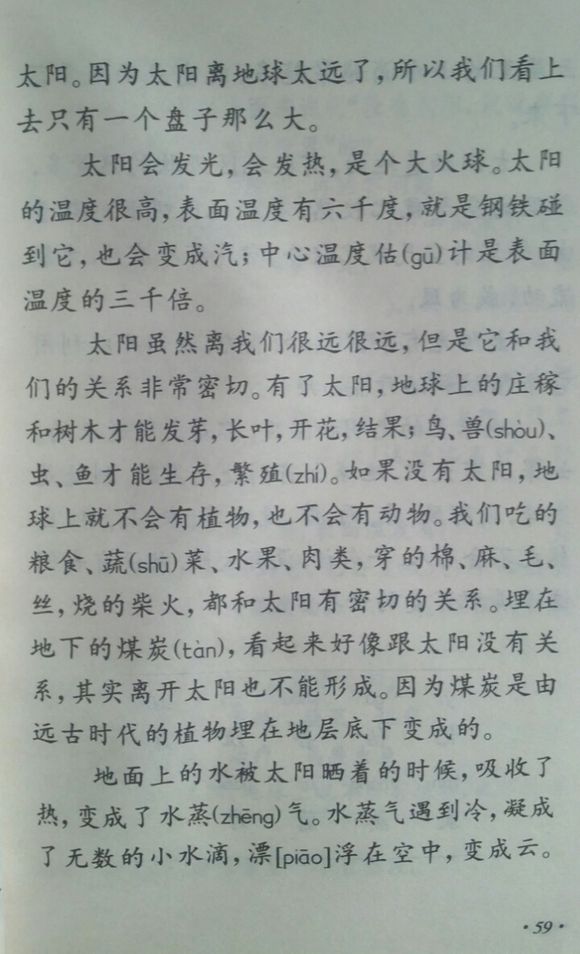 太阳。因为太阳离地球太远了，所以我们看上
去只有一个盘子那么大。
太阳会发光，会发热，是个大火球。太阳
的温度很高，表面温度有六千度，就是钢铁碰
到它，也会变成汽；中心温度估(gū)计是表面
温度的三千倍。
太阳虽然离我们很远很远，但是它和我
们的关系非常密切。有了太阳，地球上的庄稼
和树木才能发芽，长叶，开花，结果；鸟、兽(shòu)、
虫、鱼才能生存，繁殖(zhí)。如果没有太阳，地
球上就不会有植物，也不会有动物。我们吃的
粮食、蔬(shū)菜、水果、肉类，穿的棉、麻、毛、
丝，烧的柴火，都和太阳有密切的关系。埋在
地下的煤炭(tàn)，看起来好像跟太阳没有关
系，其实离开太阳也不能形成。因为煤炭是由
远古时代的植物埋在地层底下变成的。
地面上的水被太阳晒着的时候，吸收了
热，变成了水蒸(zhēng)气。水蒸气遇到冷，凝成
了无数的小水滴，漂[piāo]浮在空中，变成云。
·59·